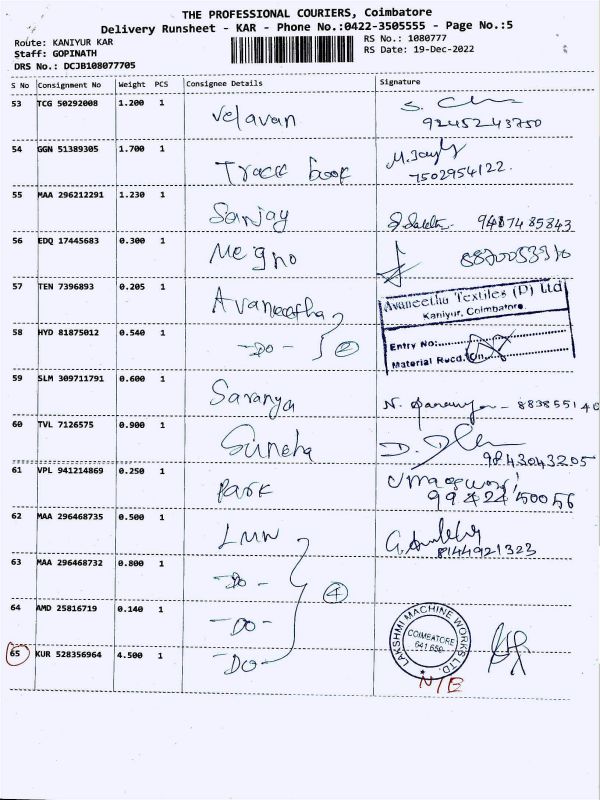 THE PROFESSIONAL COURIERS, Coimbatore
Delivery Runsheet - KAR - Phone No.:0422-3505555 - Page No.:5
Route: KANIYUR KAR
RS No.: 1080777
Staff: GOPINATH
RS Date: 19-Dec-2022
DRS No.: DCJB108077705
S No Consignment No Weight PCS Consignee Details Signature
53 TCG 50292008 1.200 1 Velavan
9245243750
54 GGN 51389305 1.700 1 Track book
7502954122
55 MAA 296212291 1.230 1 Sanjay 9487485843
56 EDQ 17445683 0.300 1 Megno
57 TEN 7396893 0.205 1 Avaneetha
Avaneetha Textiles (P) Ltd
Kaniyur, Coimbatore.
58 HYD 81875012 0.540 1 -Do- 2
Entry No:
Material Rucd. On
59 SLM 309711791 0.600 1 Saranya
60 TVL 7126575 0.900 1 Suneha
9843043205
61 VPL 941214869 0.250 1 Park
9942450056
62 MAA 296468735 0.500 1 LMW
8144921323
63 MAA 296468732 0.800 1 -Do- 4
64 AMD 25816719 0.140 1 -Do-
65 KUR 528356964 4.500 1 -Do-
LAKSHMI MACHINE WORKS LTD.
COIMBATORE
641 659
N/E